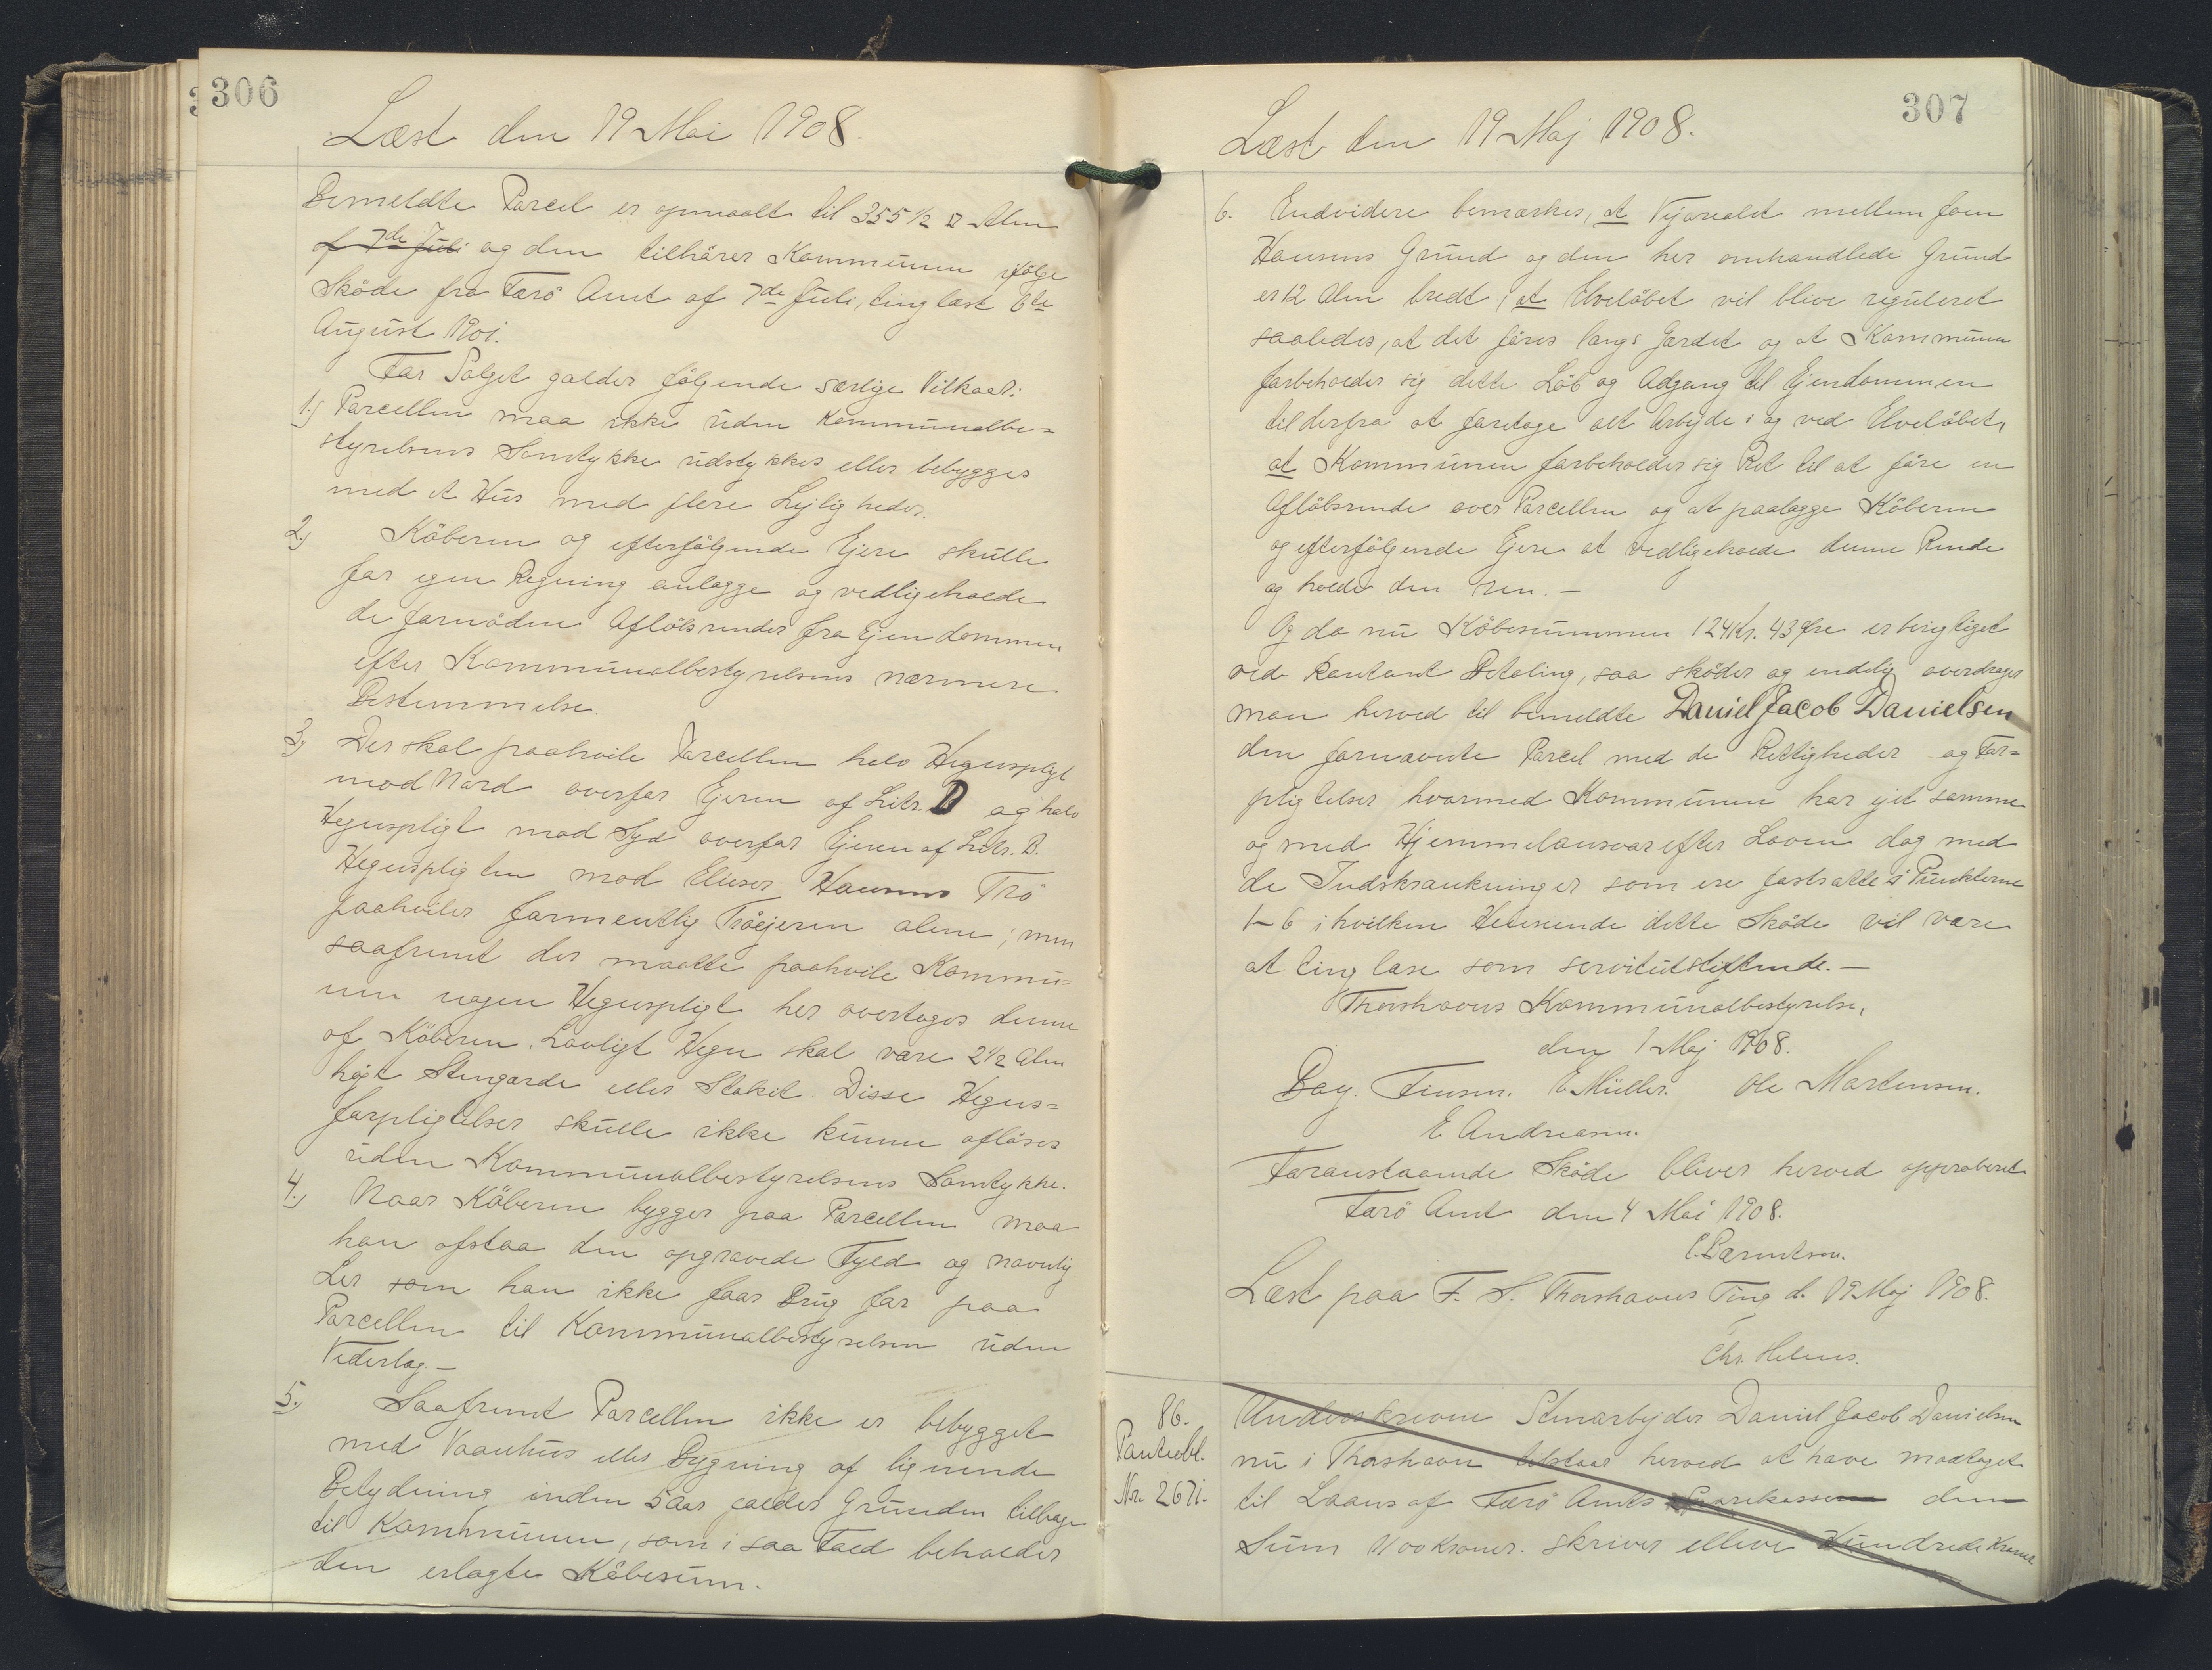 306
Læst den 19 Mai 1908.
Bemeldte Parcel er opmaalt til 355 1/2 □ Alen
af 7de Juli og den tilhører Kommunen ifølge
Skøde fra Færø Amt af 7de Juli, tinglæst 6te
August 1901.
For Salget gælder følgende særlige Vilkaar:
1.) Parcellen maa ikke uden Kommunalbe=
styrelsens Samtykke udstykkes eller bebygges
med et Hus med flere Lejligheder.
2.) Køberen og efterfølgende Ejere skulle
for egen Regning anlægge og vedligeholde
de fornødne Afløbsrender fra Ejendommen
efter Kommunalbestyrelsens nærmere
Bestemmelse.
3.) Der skal paahvile Parcellen halv Hegnspligt
mod Nord overfor Ejeren af Litr. D og halv
Hegnspligt mod Syd overfor Ejeren af Litr. B.
Hegnspligten mod Elieser Hansens Trø
paahviler formentlig Trøejeren alene; men
saafremt der maatte paahvile Kommu=
nen nogen Hegnspligt her overtages denne
af Køberen. Lovligt Hegn skal være 2 1/2 Alen
højt Stengærde eller Stakit. Disse Hegns=
forpligtelser skulle ikke kunne afløses
uden Kommunalbestyrelsens Samtykke.
4.) Naar Køberen bygger paa Parcellen maa
han afstaa den opgravede Fyld og navnlig
Ler som han ikke faar Brug for paa
Parcellen til Kommunalbestyrelsen uden
Vederlag.—
5.) Saafremt Parcellen ikke er bebygget
med Vaanhus eller Bygning af lignende
Betydning inden 5 Aar falder Grunden tilbage
til Kommunen, som i saa Fald beholder
den erlagte Købesum.
307
Læst den 19 Maj 1908.
6. Endvidere bemærkes, at Vejarealet mellem Joen
Hansens Grund og den her omhandlede Grund
er 12 Alen bredt, at Elveløbet vil blive reguleret
saaledes, at det føres langs Gærdet og at Kommunen
forbeholder sig dette Løb og Adgang til Ejendommen
til derfra at foretage alt Arbejde i og ved Elveløbet,
at Kommunen forbeholder sig Ret til at føre en
Afløbsrende over Parcellen og at paalægge Køberen
og efterfølgende Ejere at vedligeholde denne Rende
og holde den ren.—
Og da nu Købesummen 124 Kr. 43 Øre er berigtiget
ved kontant Betaling, saa skøder og endelig overdrager
man herved til bemeldte Daniel Jacob Danielsen
den fornævnte Parcel med de Rettigheder og For=
pligtelser hvormed Kommunen har ejet samme
og med Hjemmelansvar efter Loven dog med
de Indskrænkninger som ere fastsatte i Punkterne
1-6 i hvilken Henseende dette Skøde vil være
at tinglæse som servitutstiftende.—
Thorshavns Kommunalbestyrelse,
den 1 Maj 1908.
Bay. Finsen. E. Müller. Ole Mortensen.
E. Andreasen.
Foranstaaende Skøde bliver herved approberet
Færø Amt den 4 Mai 1908.
C. Bærentsen.
Læst paa F. S. Thorshavns Ting d. 19 Maj 1908.
Chr. Helms.
86.
Panteobl.
Nr. 2671.
Underskrevne Stenarbejder Daniel Jacob Danielsen
nu i Thorshavn tilstaar herved at have modtaget
til Laans af Færø Amts Sparekassen den
Sum 1100 Kroner. skriver elleve Hundrede Kroner